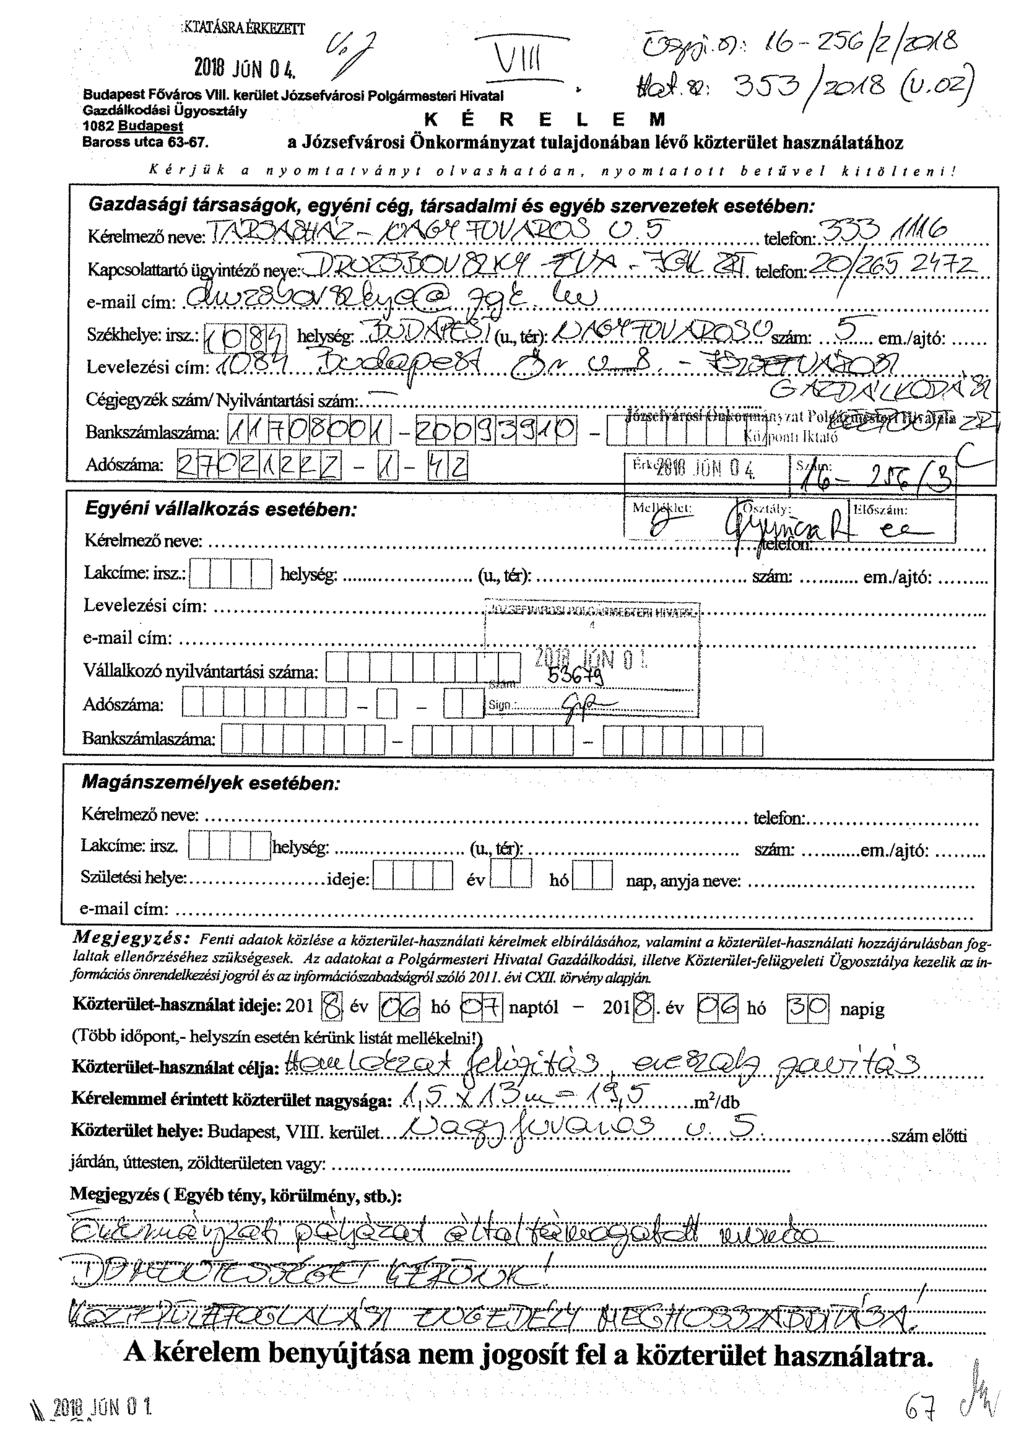 KTATÁSRA ÉRKEZETT
2018 JÚN 0 4.
VIII
16-256/2/2018
353/2018 (V.02)
Budapest Főváros VIII. kerület Józsefvárosi Polgármesteri Hivatal
Gazdálkodási Ügyosztály
1082 Budapest
Baross utca 63-67.
K É R E L E M
a Józsefvárosi Önkormányzat tulajdonában lévő közterület használatához
Kérjük a nyomtatványt olvashatóan, nyomtatott betűvel kitölteni!
Gazdasági társaságok, egyéni cég, társadalmi és egyéb szervezetek esetében:
Kérelmező neve: TÁRSASHÁZ - NAGY FUVAROS U. 5 telefon: 333 1116
Kapcsolattartó ügyintéző neve: DROZSBOVSZKY ÉVA - JGK ZRT. telefon: 20/265 2472
e-mail cím: drozsbovszkye@jgk.hu
Székhelye: irsz.: 1084 helység: BUDAPEST (u., tér): NAGYFUVAROS U szám: 5 em./ajtó: ......
Levelezési cím: 1084 Budapest Őr u. 8. - JÓZSEFVÁROSI
GAZDÁLKODÁSI
Cégjegyzék szám/ Nyilvántartási szám: -
KÖZPONT ZRT
Józsefvárosi Önkormányzat Polgármesteri Hivatala
Központi Iktató
Bankszámlaszáma: 11708001 - 20093910 -
Adószáma: 27021222 - 1 - 42
Érk. 2018 JÚN 0 4. Szám: 16- 256/3
Melléklet: Osztály: Előszám:
Egyéni vállalkozás esetében:
Kérelmező neve: telefon:
Lakcíme: irsz.: helység: (u., tér): szám: em./ajtó:
Levelezési cím:
JÓZSEFVÁROSI POLGÁRMESTERI HIVATAL
4
e-mail cím:
2018 JÚN 0 1.
Vállalkozó nyilvántartási száma:
Szám: 53679
Adószáma: - -
Sign.:
Bankszámlaszáma: - -
Magánszemélyek esetében:
Kérelmező neve: telefon:
Lakcíme: irsz. helység: (u., tér): szám: em./ajtó:
Születési helye: ideje: év hó nap, anyja neve:
e-mail cím:
Megjegyzés: Fenti adatok közlése a közterület-használati kérelmek elbírálásához, valamint a közterület-használati hozzájárulásban fog-
laltak ellenőrzéséhez szükségesek. Az adatokat a Polgármesteri Hivatal Gazdálkodási, illetve Közterület-felügyeleti Ügyosztálya kezelik az in-
formációs önrendelkezési jogról és az információszabadságról szóló 2011. évi CXII. törvény alapján.
Közterület-használat ideje: 2018 év 06 hó 07 naptól – 2018. év 06 hó 30 napig
(Több időpont,- helyszín esetén kérünk listát mellékelni!)
Közterület-használat célja: Homlokzat felújítás, eresz javítás
Kérelemmel érintett közterület nagysága: 1,5 x 13 m = 19,5 m²/db
Közterület helye: Budapest, VIII. kerület Nagyfuvaros u. 5. szám előtti
járdán, úttesten, zöldterületen vagy:
Megjegyzés ( Egyéb tény, körülmény, stb.):
Önkormányzati pályázat által támogatott munka
DÍJMENTESSÉGET KÉRÜNK!
KÖZTERÜLETFOGLALÁSI ENGEDÉLY MEGHOSSZABBÍTÁSA!
A kérelem benyújtása nem jogosít fel a közterület használatra.
2018 JÚN 0 1.
67